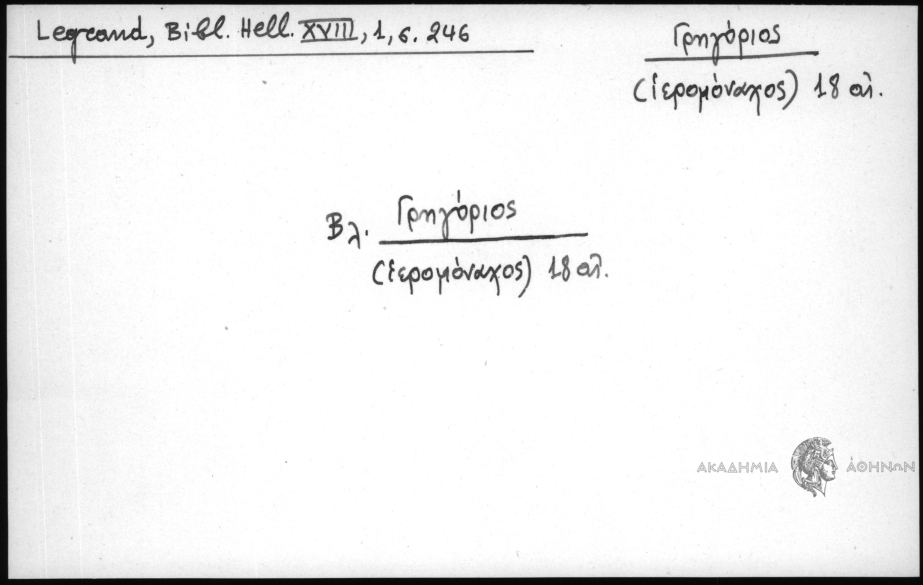 Legrand, Bibl. Hell. XVIII, 1, σ. 246
Γρηγόριος
(ἱερομόναχος) 18 αἰ.
Βλ. Γρηγόριος
(ἱερομόναχος) 18 αἰ.
ΑΚΑΔΗΜΙΑ ΑΘΗΝΩΝ